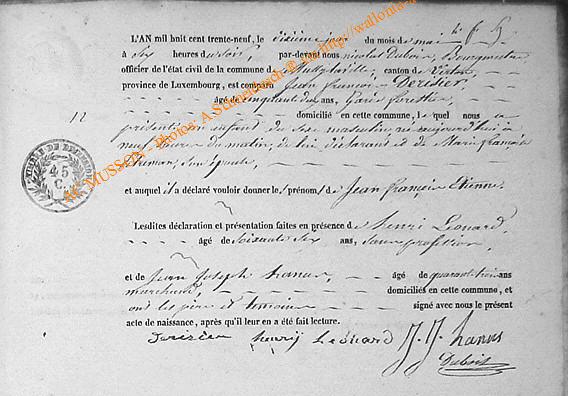 L'AN mil huit cent trente-neuf, le dixième jour du mois de mai
à six heures du soir, par-devant nous nicolas Dubois, Bourgmestre
officier de l'état civil de la commune de canton de Virton
province de Luxembourg, est comparu Jean françois Derisier
âgé de cinquante ans, Garde forestier,
12 domicilié en cette commune, lequel nous a
présenté un enfant du sexe masculin, né aujourd'hui à
neuf heures du matin, de lui déclarant et de Marie françoise
son épouse
et auquel il a déclaré vouloir donner le prénom de Jean françois Etienne
Lesdites déclaration et présentation faites en présence de henri Léonard,
âgé de soixante six ans, sans profession
et de Jean Joseph hanus, âgé de quarante ans
marchand, domiciliés en cette commune, et
ont les père et témoins signé avec nous le présent
acte de naissance, après qu'il leur en a été fait lecture.
Derisier henrÿ Léonard J. J. hanus
Dubois
45
C.
MUSSON - Photos: A.
@ http://wallonia